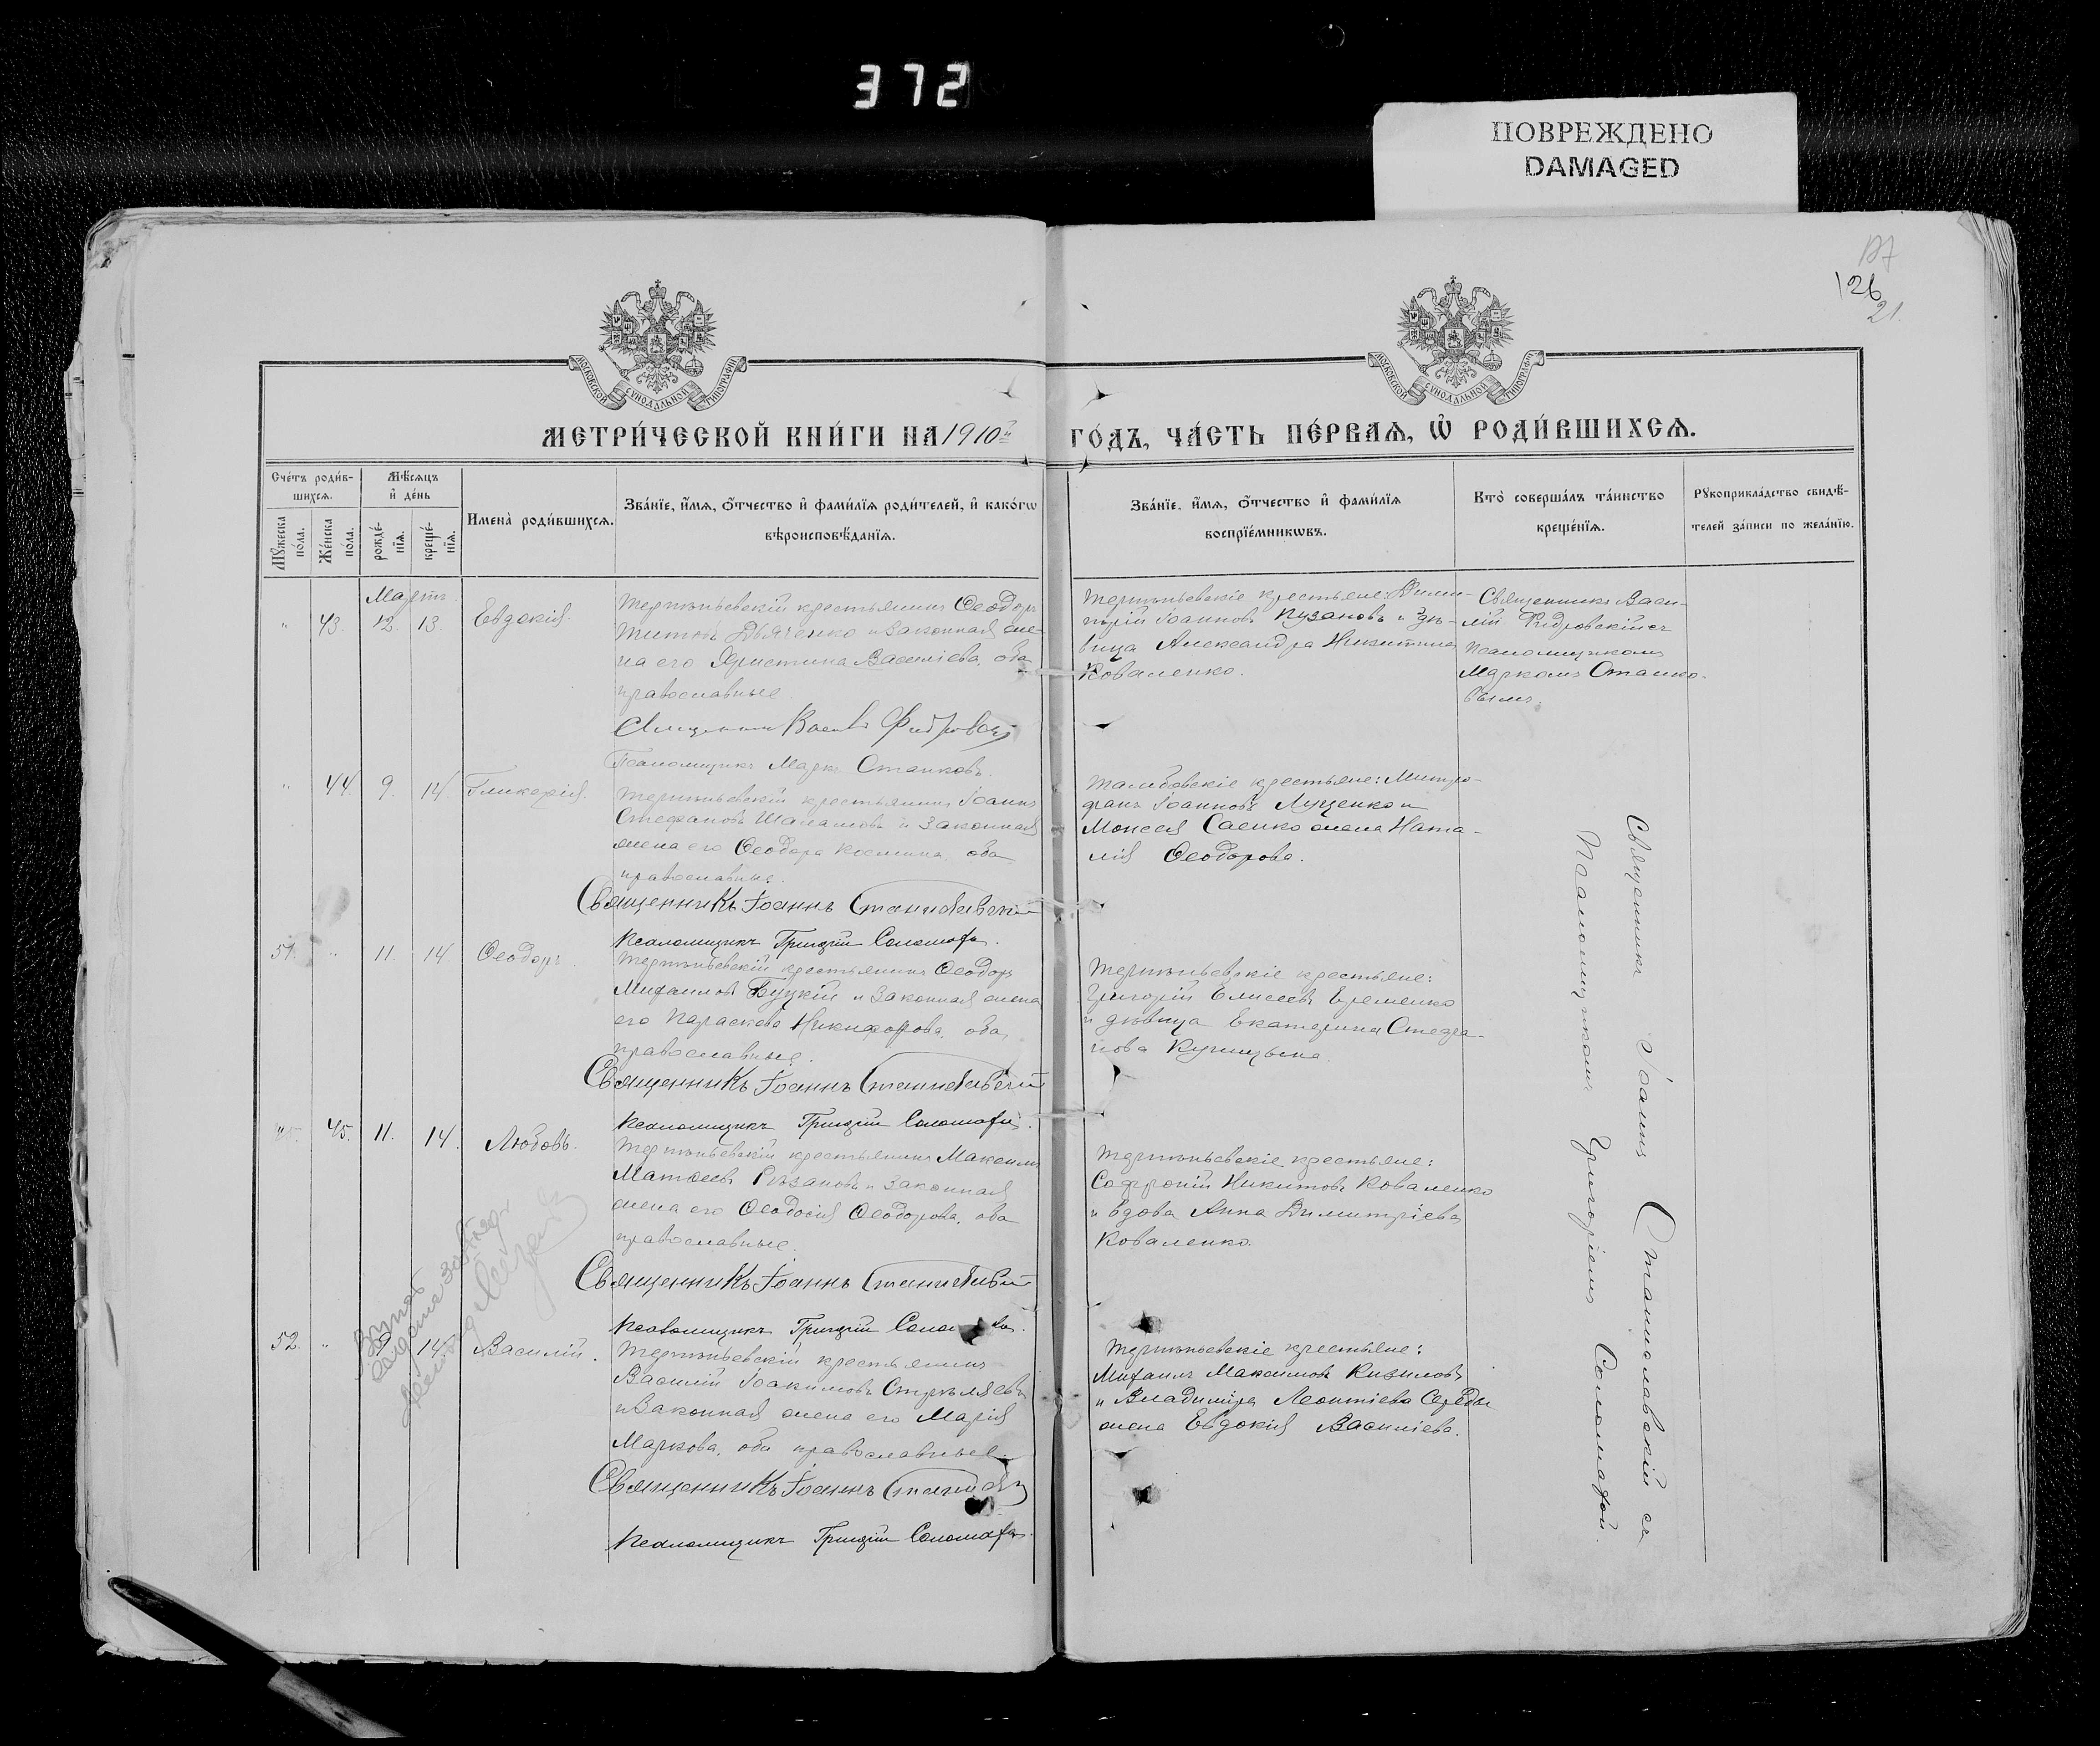 372
ПОВРЕЖДЕНО
DAMAGED
127
126
21.
МОСКОВСКОЙ СУНОДАЛЬНОЙ ТИПОГРАФІИ
МОСКОВСКОЙ СУНОДАЛЬНОЙ ТИПОГРАФІИ
МЕТРИ́ЧЕСКОЙ КНИ́ГИ НА 1910 ГО́ДЪ, ЧА́СТЬ ПЕ́РВАѦ, Ѡ҆ РОДИ́ВШИХСѦ.
Сче́тъ роди́в-
шихсѧ.
Мꙋ́жеска по́ла.
Же́нска по́ла.
Мѣ́сѧцъ
и҆ де́нь
рожде́-
нїѧ.
креще́-
нїѧ.
И҆мена̀ роди́вшихсѧ.
Зва́нїе, и҆́мѧ, ѻ҆́тчество и҆ фами́лїѧ роди́телей, и҆ како́гѡ
вѣроисповѣ́данїѧ.
Зва́нїе, и҆́мѧ, ѻ҆́тчество и҆ фами́лїѧ
воспрїе́мникѡвъ.
Кто̀ соверша́лъ та́инство
креще́нїѧ.
Рꙋкоприкла́дство свидѣ́-
телей за́писи по жела́нїю.
Мартъ.
" 43. 12. 13. Евдокія.
Терпѣньевскій крестьянинъ Ѳеодоръ
Титовъ Дьяченко и законная же-
на его Христина Васильева, оба
православные
Священникъ Фидровскій
Псаломщикъ Маркъ Станковъ.
Терпѣньевскіе крестьяне: Дими-
трій Іоанновъ и дѣ-
вица Александра Никитина
Коваленко.
Священникъ Васи-
лій Фидровскій съ
псаломщикомъ
Маркомъ Станко-
вымъ.
" 44. 9. 14. Гликерія.
Терпѣньевскій крестьянинъ Іоаннъ
Стефановъ Шаламовъ и законная
жена его Ѳеодора Космина, оба
православные.
Священникъ Іоаннъ Станиславскій
Псаломщикъ Григорій Соломаха.
Тамбовскіе крестьяне: Митро-
фанъ Іоанновъ Луценко и
Моисея Саенко жена Ната-
лія Ѳеодорова.
51. " 11. 14. Ѳеодоръ
Терпѣньевскій крестьянинъ Ѳеодоръ
Михаиловъ Буцкій и законная жена
его Параскева Никифорова, оба
православные.
Священникъ Іоаннъ Станиславскій
Псаломщикъ Григорій Соломаха.
Терпѣньевскіе крестьяне:
Григорій Елисеевъ Еременко
и дѣвица Екатерина Стефа-
нова
45. 11. 14. Любовь.
Терпѣньевскій крестьянинъ Максимъ
Матѳеевъ Рѣзановъ и законная
жена его Ѳеодосія Ѳеодорова, оба
православные.
Священникъ Іоаннъ Станиславскій
Псаломщикъ Григорій Соломаха.
Терпѣньевскіе крестьяне:
Софроній Никитовъ Коваленко
и вдова Анна Димитріева
Коваленко.
52. " 14. Василій.
Терпѣньевскій крестьянинъ
Василій Іоакимовъ Стрѣляевъ
и законная жена его Марія
Маркова, оба православные.
Священникъ Іоаннъ
Псаломщикъ Григорій Соломаха.
Терпѣньевскіе крестьяне:
Михаилъ Максимовъ Кизиловъ
и Владиміра Леонтіева Середы
жена Евдокія Василіева.
Священникъ Іоаннъ Станиславскій съ
Псаломщикомъ Григоріемъ Соломахой.